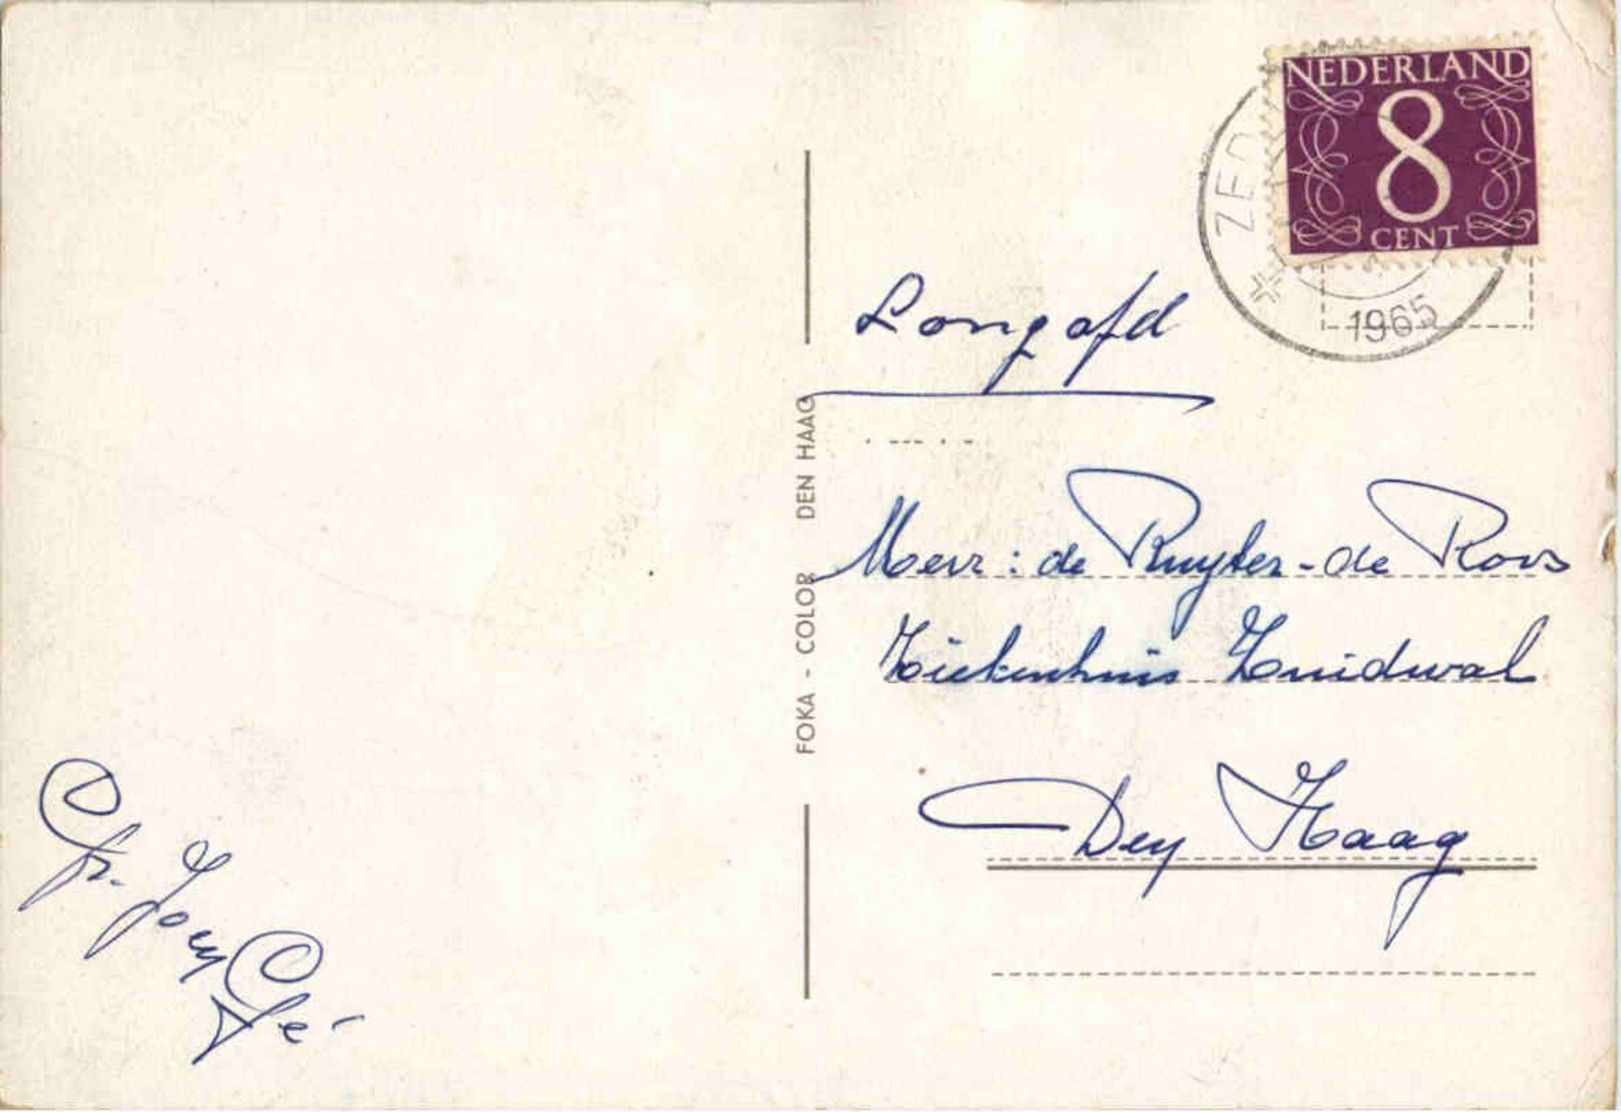 NEDERLAND
8
CENT
1965
Longafd
FOKA - COLOR DEN HAAG
Mevr: de Ruyter-de Roos
Ziekenhuis Zuidwal
Den Haag
Gr. Joey
Gé